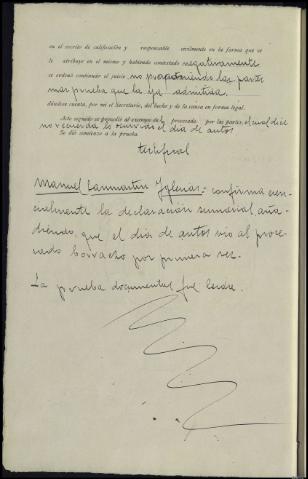 en el escrito de calificación y responsable civilmente en la forma que se
le atribuye en el mismo y habiendo contestado negativamente
se ordenó continuar el juicio no proponiendo las partes
mas prueba que la ya admitida
dándose cuenta, por mí el Secretario, del hecho y de la causa en forma legal.
Acto seguido se procedió al examen del procesado por las partes, el cual dice
no recuerda lo ocurrido el día de autos
Se dió comienzo a la prueba.
testifical
Manuel Sanmartin Yglesias: confirma esen-
cialmente la declaración sumarial aña-
diendo, que el dia de autos vio al proce-
sado borracho por primera vez.
La prueba documental fue leida.